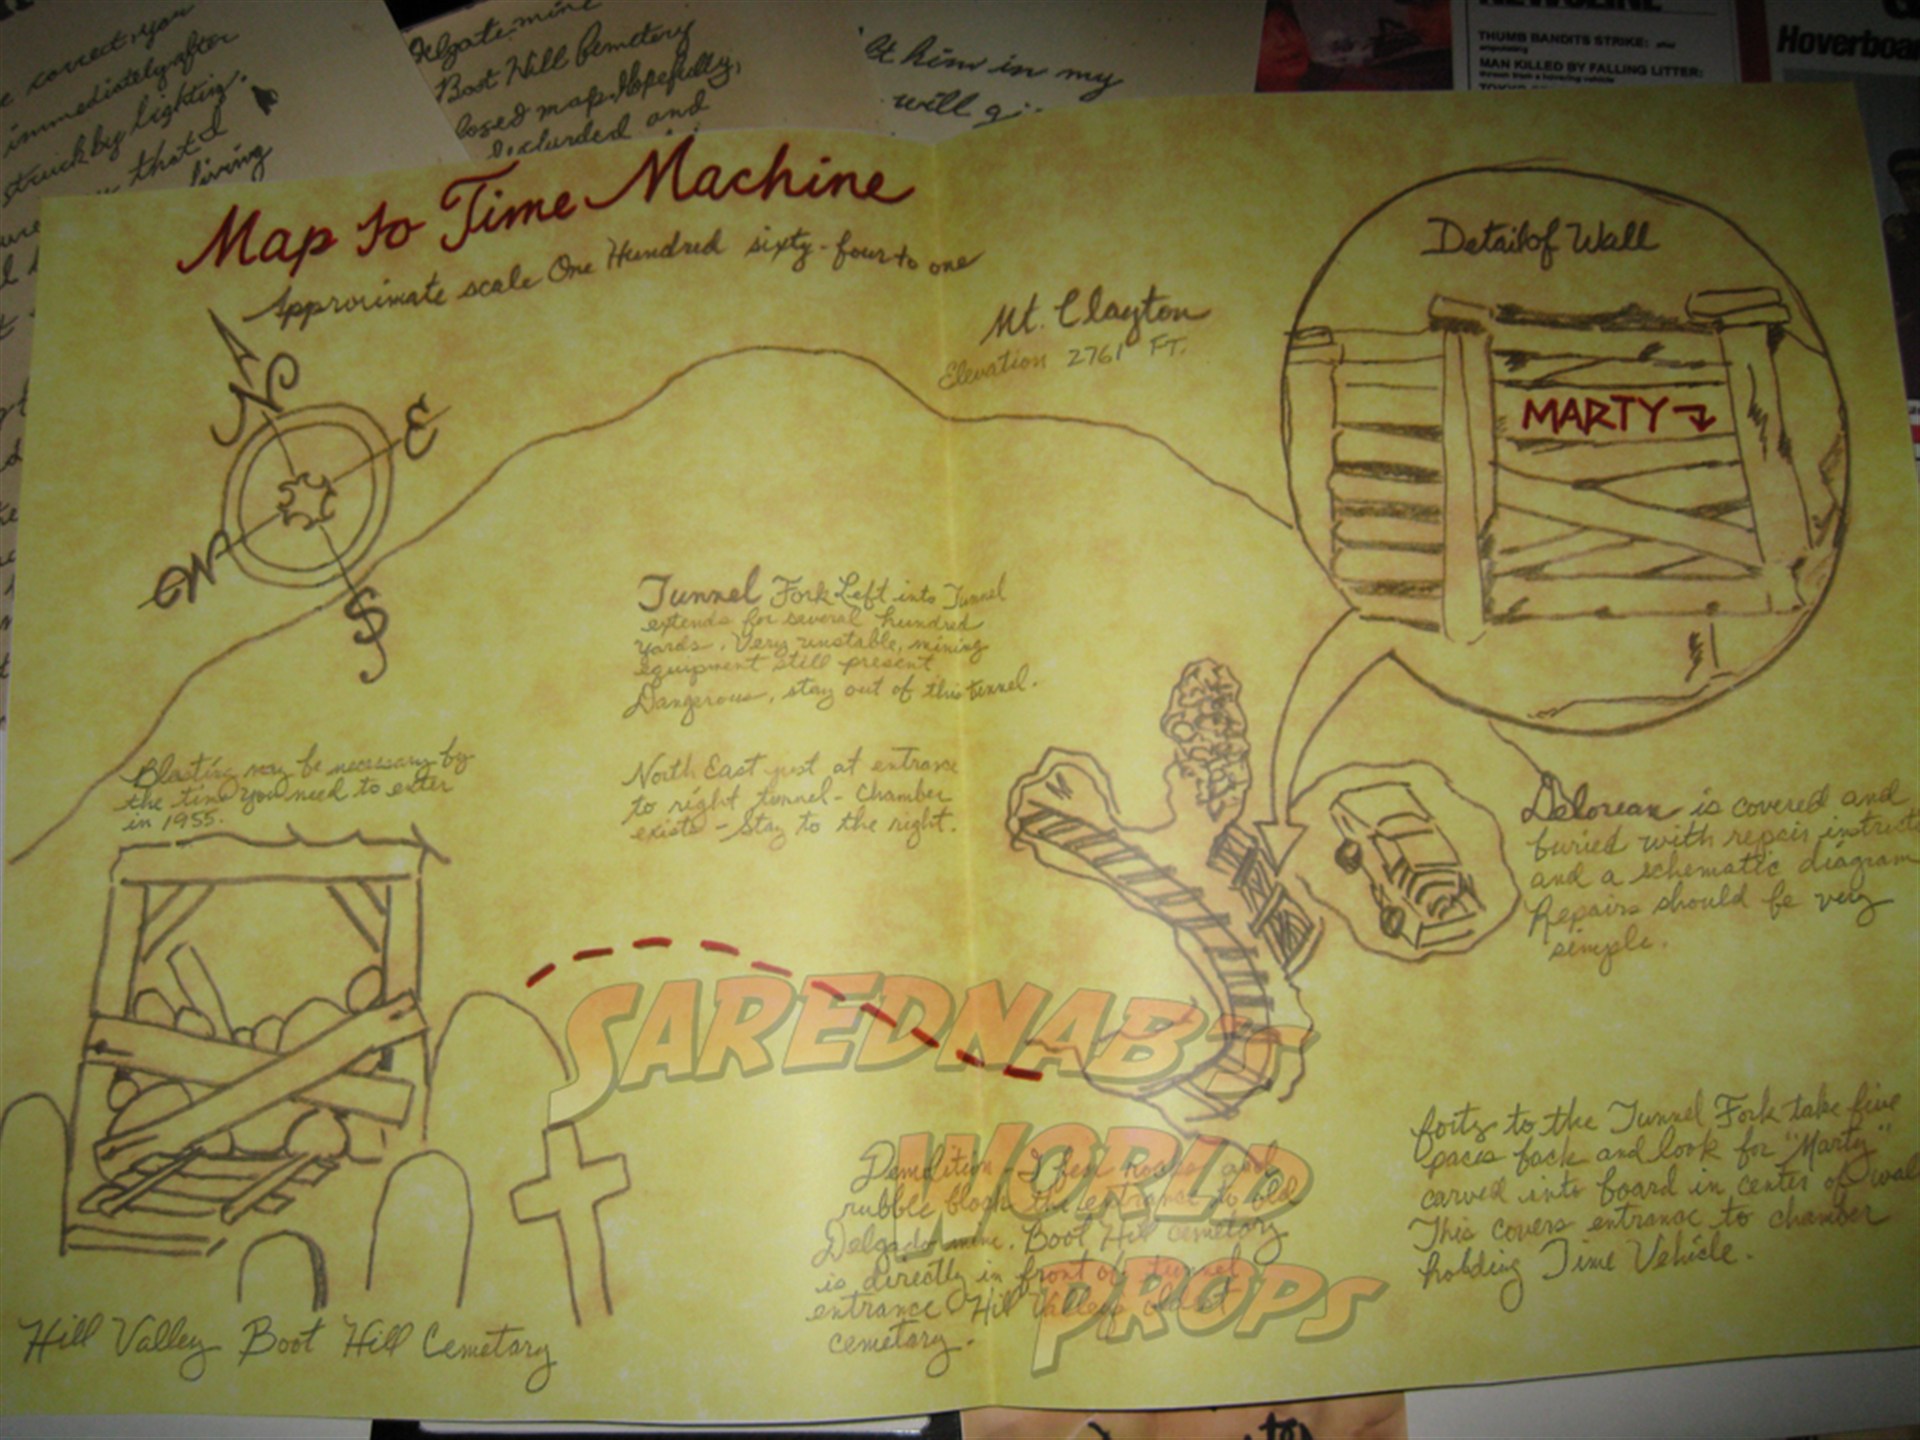 e correct, you
immediately after
struck by lightning.
that I
living
Delgate mine
Boot Hill Cemetery
losed map. Hopefully,
and
him in my
will
NEWSLINE
THUMB BANDITS STRIKE:
MAN KILLED BY FALLING LITTER:
Hoverboa
Map to Time Machine
Approximate scale One Hundred sixty-four to one
N
E
W
S
Mt. Clayton
Elevation 2761 FT.
Detail of Wall
MARTY
Tunnel Fork Left into Tunnel
extends for several hundred
yards. Very unstable, mining
equipment still present
Dangerous, stay out of this tunnel.
North East just at entrance
to right tunnel - chamber
exists - Stay to the right.
Blasting may be necessary by
the time you need to enter
in 1955.
Delorean is covered and
buried with repair instruct
and a schematic diagram
Repairs should be very
simple.
SAREDNAB'S
WORLD
PROPS
Demolition - I fear rocks and
rubble block the entrance to old
Delgado mine. Boot Hill cemetary
is directly in front of tunnel
entrance Hill Valleys oldest
cemetary.
forty to the Tunnel Fork take five
paces back and look for "Marty"
carved into board in center of wal
This covers entrance to chamber
holding Time Vehicle.
Hill Valley Boot Hill Cemetary